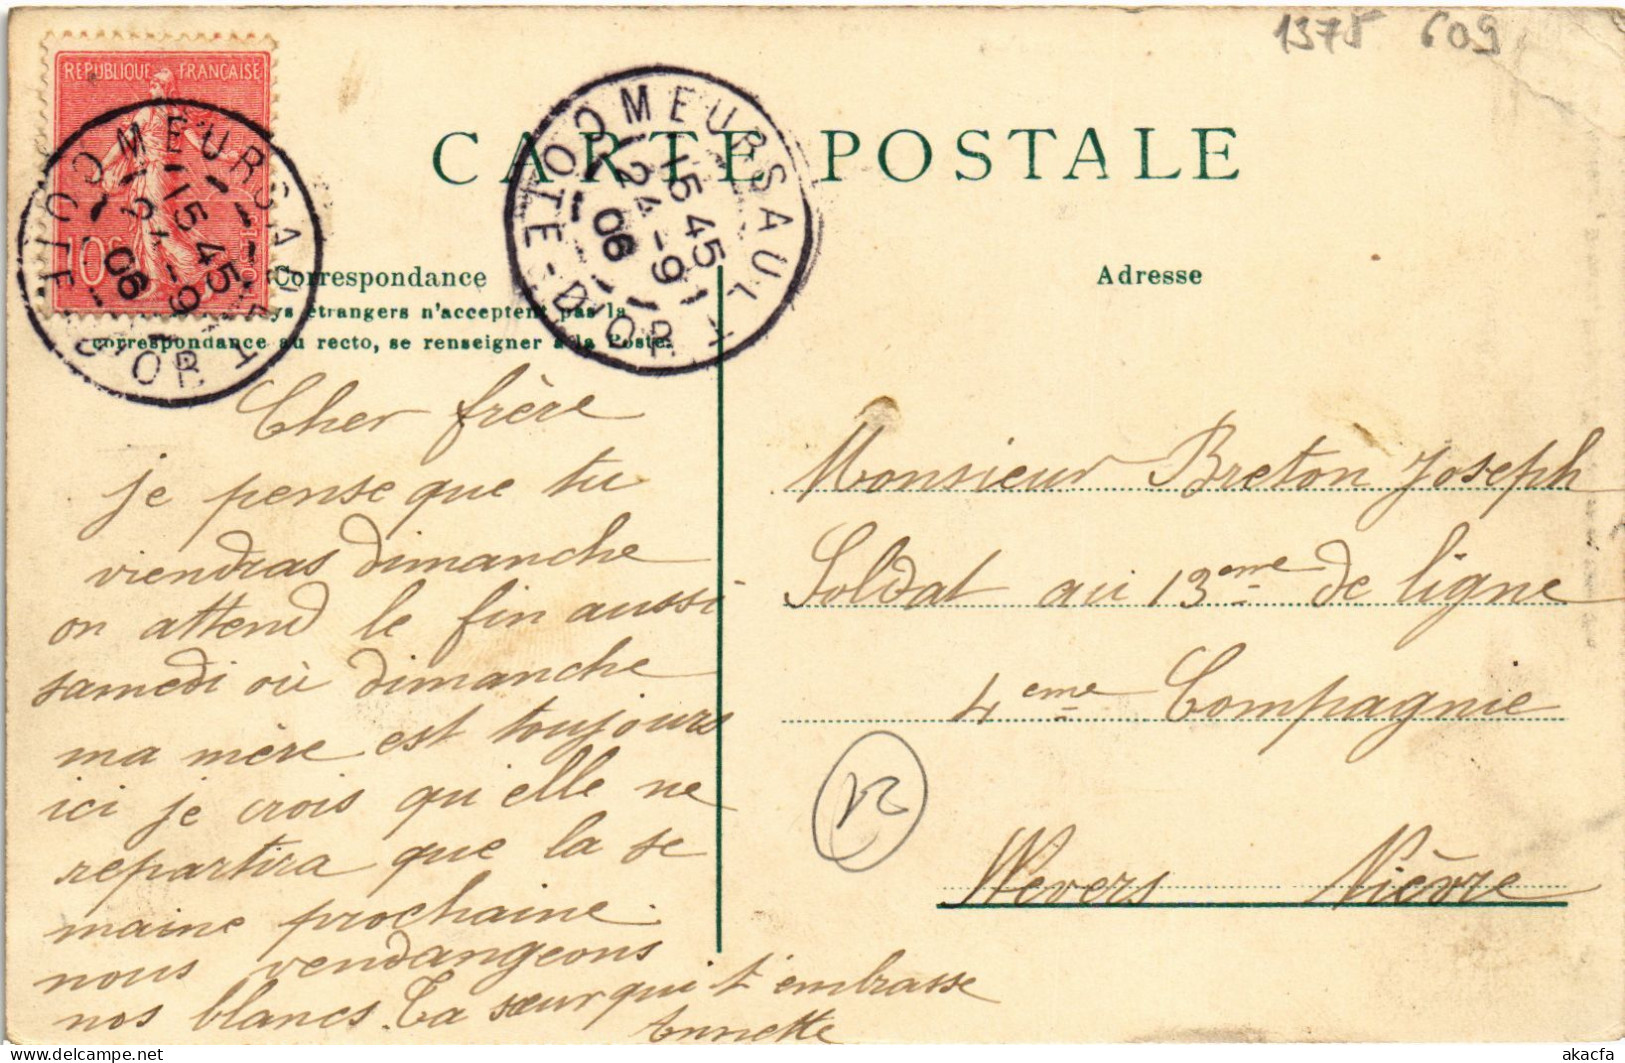 1375 609
REPUBLIQUE FRANÇAISE
10c
MEURSAULT
15 45
24 - 9
06
COTE-D'OR
MEURSAULT
15 45
24 - 9
06
COTE-D'OR
CARTE POSTALE
Correspondance
ys étrangers n'acceptent pas la
correspondance au recto, se renseigner à la Poste.
Cher frère
je pense que tu
viendras dimanche
on attend le fin aussi
samedi où dimanche
ma mère est toujours
ici je crois qu'elle ne
repartira que la se
maine prochaine.
nous vendangeons
nos blancs. Ta sœur qui t'embrasse
Annette
Adresse
Monsieur Breton Joseph
Soldat au 13eme de ligne
4eme Compagnie
Nevers Nièvre
delcampe.net
akacfa